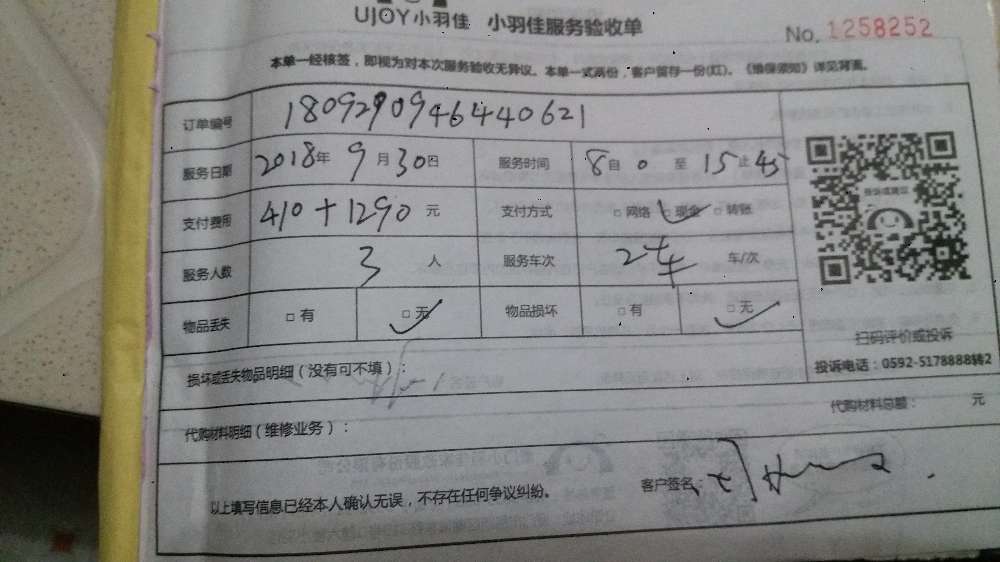 UJOY小羽佳 小羽佳服务验收单
No. 1258252
本单一经核签，即视为对本次服务验收无异议。本单一式两份，客户留存一份(红)。《维保须知》详见背面。
订单编号 1809290946440621
服务日期 2018年9月30日 服务时间 8自0至15止45
支付费用 410+1290元 支付方式 □网络 □现金 □转账
服务人数 3人 服务车次 2车 车/次
物品丢失 □有 □无 物品损坏 □有 □无
投诉或建议
扫码评价或投诉
投诉电话：0592-5178888转2
损坏或丢失物品明细（没有可不填）：
代购材料明细（维修业务）： 代购材料总额： 元
以上填写信息已经本人确认无误，不存在任何争议纠纷。 客户签名：